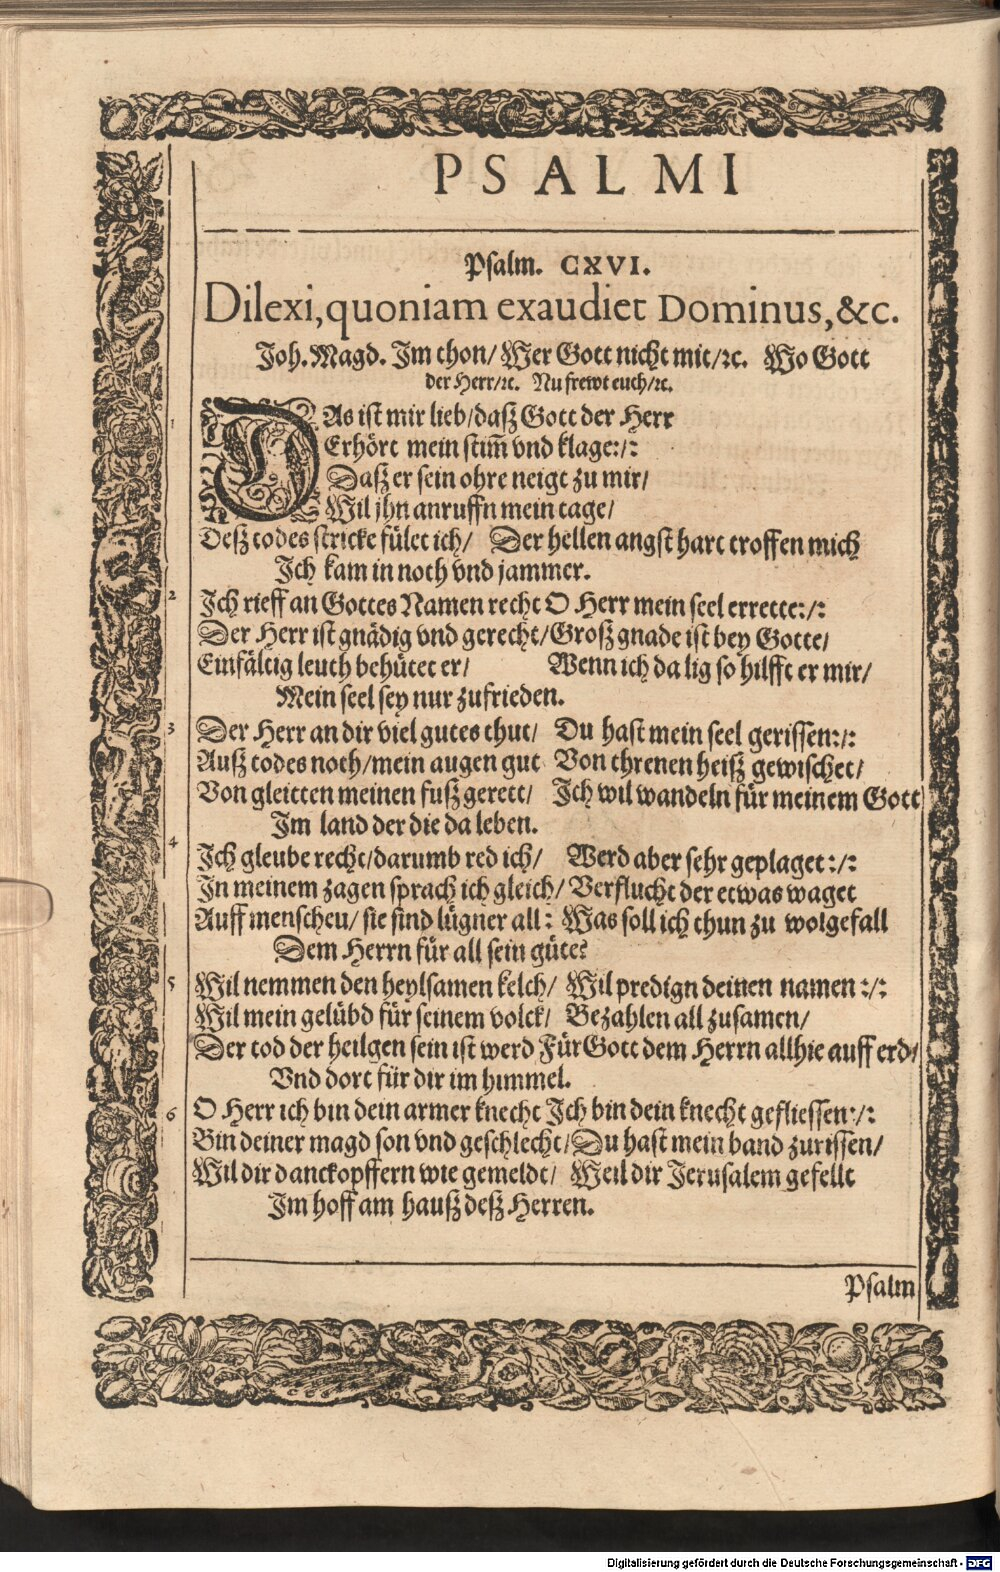 PSALMI
Psalm. CXVI.
Dilexi, quoniam exaudiet Dominus, &c.
Joh. Magd. Im thon/ Wer Gott nicht mit/ꝛc. Wo Gott
der Herr/ꝛc. Nu frewt euch/ꝛc.
1 DAs ist mir lieb/daß Gott der Herr
Erhört mein stim̃ vnd klage:/:
Daß er sein ohre neigt zu mir/
Wil jhn anruffn mein tage/
Deß todes stricke fület ich/ Der hellen angst hart troffen mich
Ich kam in noth vnd jammer.
2 Ich rieff an Gottes Namen recht O Herr mein seel errette:/:
Der Herr ist gnädig vnd gerecht/Groß gnade ist bey Gotte/
Einfältig leuth behütet er/ Wenn ich da lig so hilfft er mir/
Mein seel sey nur zufrieden.
3 Der Herr an dir viel gutes thut/ Du hast mein seel gerissen:/:
Auß todes noth/mein augen gut Von threnen heiß gewischet/
Von gleitten meinen fuß gerett/ Ich wil wandeln für meinem Gott
Im land der die da leben.
4 Ich gleube recht/darumb red ich/ Werd aber sehr geplaget:/:
In meinem zagen sprach ich gleich/ Verflucht der etwas waget
Auff menscheu/ sie sind lügner all: Was soll ich thun zu wolgefall
Dem Herrn für all sein güte?
5 Wil nemmen den heylsamen kelch/ Wil predign deinen namen:/:
Wil mein gelübd für seinem volck/ Bezahlen all zusamen/
Der tod der heilgen sein ist werd Für Gott dem Herrn allhie auff erd/
Vnd dort für dir im himmel.
6 O Herr ich bin dein armer knecht Ich bin dein knecht gefliessen:/:
Bin deiner magd son vnd geschlecht/Du hast mein band zurissen/
Wil dir danckopffern wie gemeldt/ Weil dir Jerusalem gefellt
Im hoff am hauß deß Herren.
Psalm
Digitalisierung gefördert durch die Deutsche Forschungsgemeinschaft - DFG